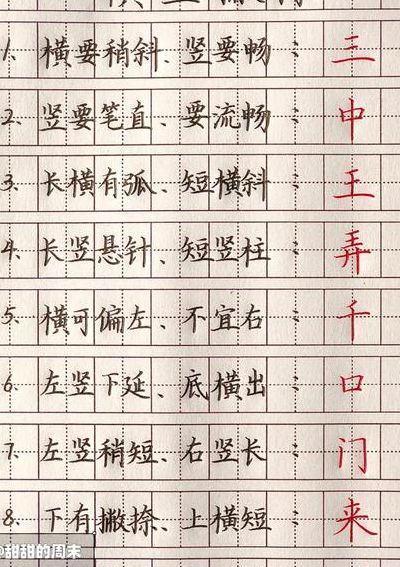 1、横要稍斜、竖要畅：三
2、竖要笔直、要流畅：中
3、长横有弧、短横斜：王
4、长竖悬针、短竖柱：弄
5、横可偏左、不宜右：千
6、左竖下延、底横出：口
7、左竖稍短、右竖长：门
8、下有撇捺、上横短：来
@甜甜的周末